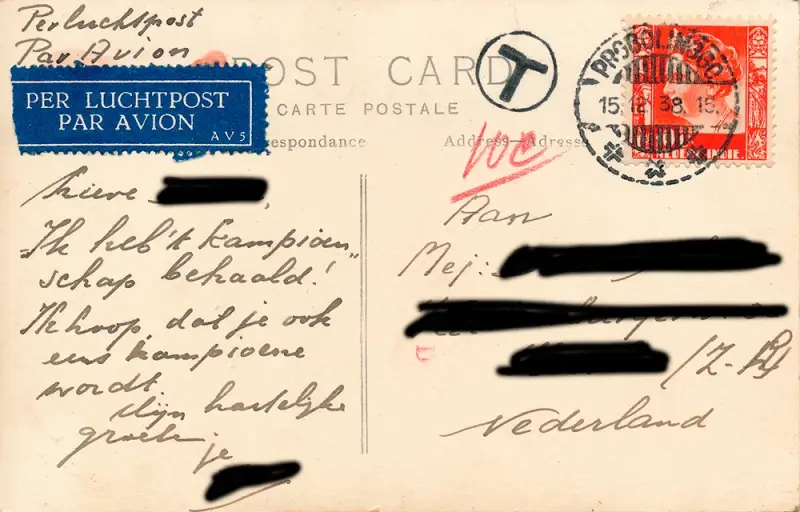 Per luchtpost
Par Avion
PER LUCHTPOST
PAR AVION
AV5
POST CARD
CARTE POSTALE
Address—Adresse
T
PROBOLINGGO
15.12.38.15.
Lieve
Ik heb 't kampioen„
schap behaald!
Ik hoop, dat je ook
eens kampioene
wordt
Mijn hartelijke
groeten
je
Aan
Mej:
/Z-H
Nederland